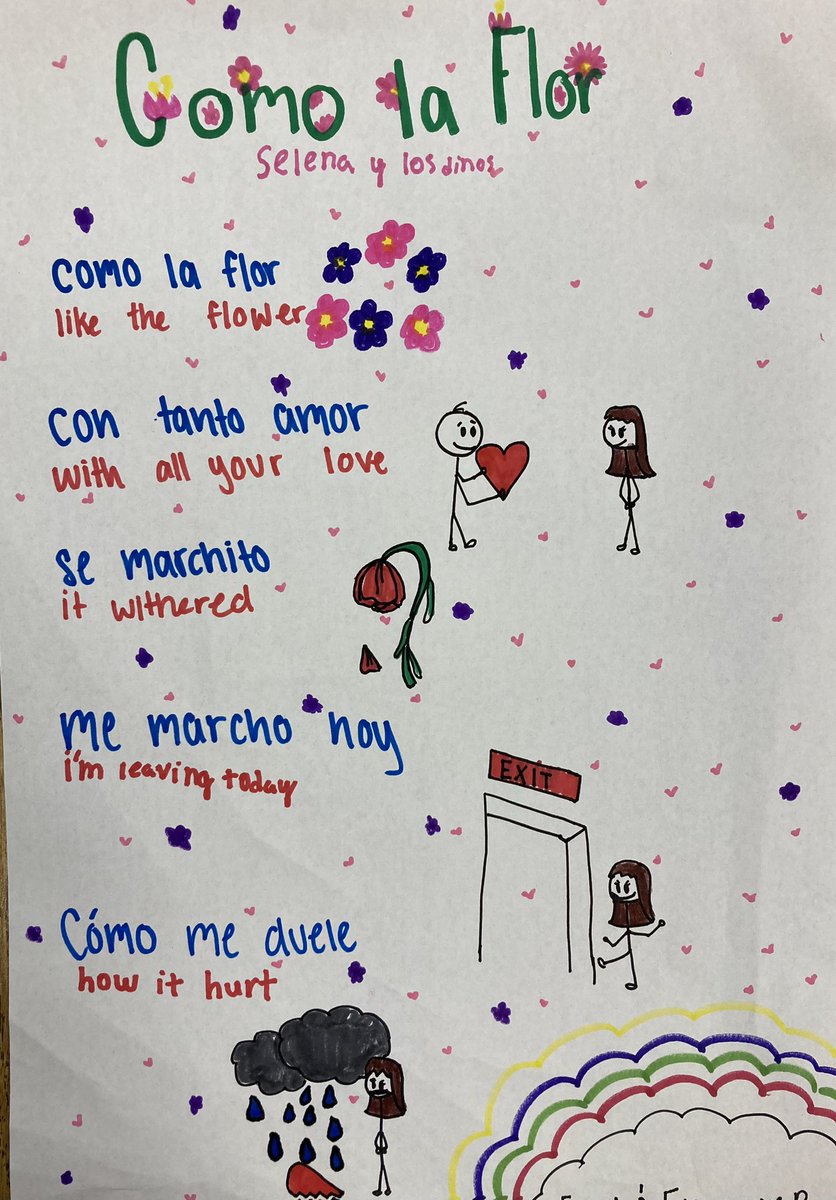 Como la Flor
Selena y los dinos
como la flor
like the flower
con tanto amor
with all your love
se marchito
it withered
me marcho hoy
i'm leaving today
EXIT
Cómo me duele
how it hurt